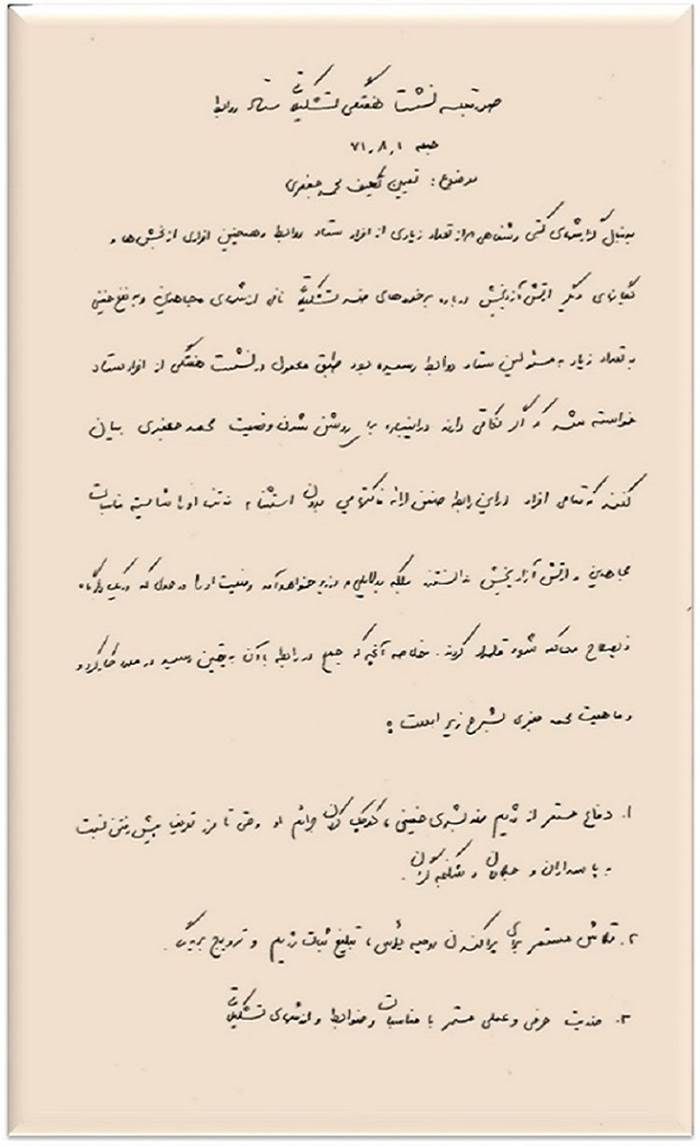 صورتجلسه نشست هفتگی تشکیلاتی ستاد روابط
جمعه ۷۱٫۸٫۱
موضوع: تعیین تکلیف محمد جعفری
بدنبال گزارشهای کتبی و شفاهی از تعداد زیادی از افراد ستاد روابط و همچنین افرادی از بخش ها و
یگانهای دیگر ارتش آزادیبخش درباره برخوردهای ضد تشکیلاتی نافی ارزشهای مجاهدین و به نفع خمینی
به تعداد زیاد به مسئولین ستاد روابط رسیده بود طبق معمول در نشست هفتگی از افراد ستاد
خواسته شد که اگر نکاتی دارند در اینباره با روشن شدن وضعیت محمد جعفری بیان
کنند که تمامی افراد در این رابطه ضمن ارائه فاکتهایی بدون استثناء نه تنها او را شایسته مناسبات
مجاهدین و ارتش آزادیبخش ندانستند بلکه بدلایلی که در زیر خواهد آمد وضعیت او را در حدی که در یک دادگاه
ذیصلاح محاکمه شود قلمداد کردند. خلاصه آنچه که جمع در رابطه با آن به یقین رسید در مورد عملکرد و
و ماهیت محمد جعفری بشرح زیر است:
۱. دفاع مستمر از رژیم ضد بشری خمینی، کوچک کردن جرائم او و حتی تا مرز توجیه پیش رفتن نسبت
به پاسداران و جلادان و شکنجه گران.
۲. تلاش مستمر برای پراکندن روحیه یأس، تبلیغ ثبات رژیم و ترویج بریدگی.
۳. ضدیت حرفی و عملی مستمر با مناسبات و ضوابط و ارزشهای تشکیلاتی